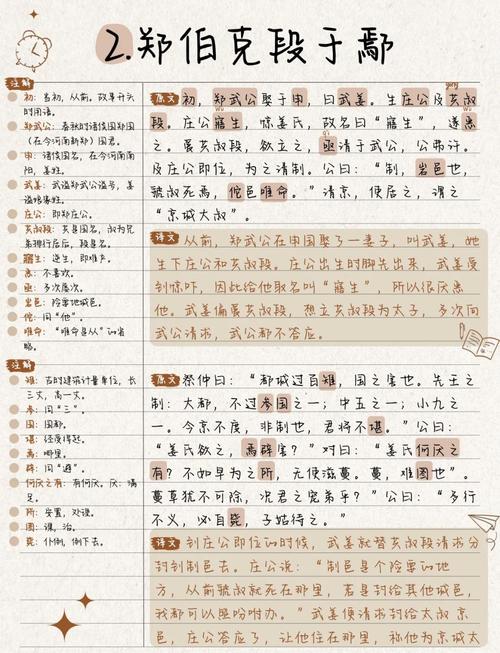 2.郑伯克段于鄢
注解
初：当初，从前。故事开头
时用语。
郑武公：春秋时诸侯国郑国
（在今河南新郑）国君。
申：诸侯国名，在今河南南
阳，姜姓。
武姜：武谥郑武公谥号，姜
谥娘家姓。
庄公：即郑庄公。
共叔段：共是国名，叔为兄
弟排行居后，段是名。
寤生：逆生，即难产。
恶：不喜欢。
亟：多次屡次。
岩邑：险要地城邑。
佗：同“他”。
唯命：“唯命是从”的省
略。
原文 初，郑武公娶于申，曰武姜。生庄公及共叔
段。庄公寤生，惊姜氏，故名曰“寤生”，遂恶
之。爱共叔段，欲立之，亟请于武公，公弗许。
及庄公即位，为之请制。公曰：“制，岩邑也，
虢叔死焉，佗邑唯命。”请京，使居之，谓之
“京城大叔”。
译文 从前，郑武公在申国娶了一妻子，叫武姜，她
生下庄公和共叔段。庄公出生时脚先出来，武姜受
到惊吓，因此给他取名叫“寤生”，所以很厌恶
他。武姜偏爱共叔段，想立共叔段为太子，多次向
武公请求，武公都不答应。
注解
雉：古时建筑计量单位，长
三丈，高一丈。
参：同“三”。
国：国都。
堪：经受得起。
焉：哪里。
辟：同“避”。
何厌之有：有何厌。厌：满
足。
所：安置，处理。
图：谋，治。
毙：仆倒，倒下去。
原文 祭仲曰：“都城过百雉，国之害也。先王之
制：大都，不过参国之一；中五之一；小九之
一。今京不度，非制也，君将不堪。”公曰：
“姜氏欲之，焉辟害？”对曰：“姜氏何厌之
有？不如早为之所，无使滋蔓。蔓，难图也”。
蔓草犹不可除，况君之宠弟乎？”公曰：“多行
不义，必自毙，子姑待之。”
译文 到庄公即位的时候，武姜就替共叔段请求分
封到制邑去。庄公说：“制邑是个险要的地
方，从前虢叔就死在那里，若是封给其他城邑，
我都可以照吩咐办。”武姜便请求封给太叔京
邑，庄公答应了，让他住在那里，称他为京城太